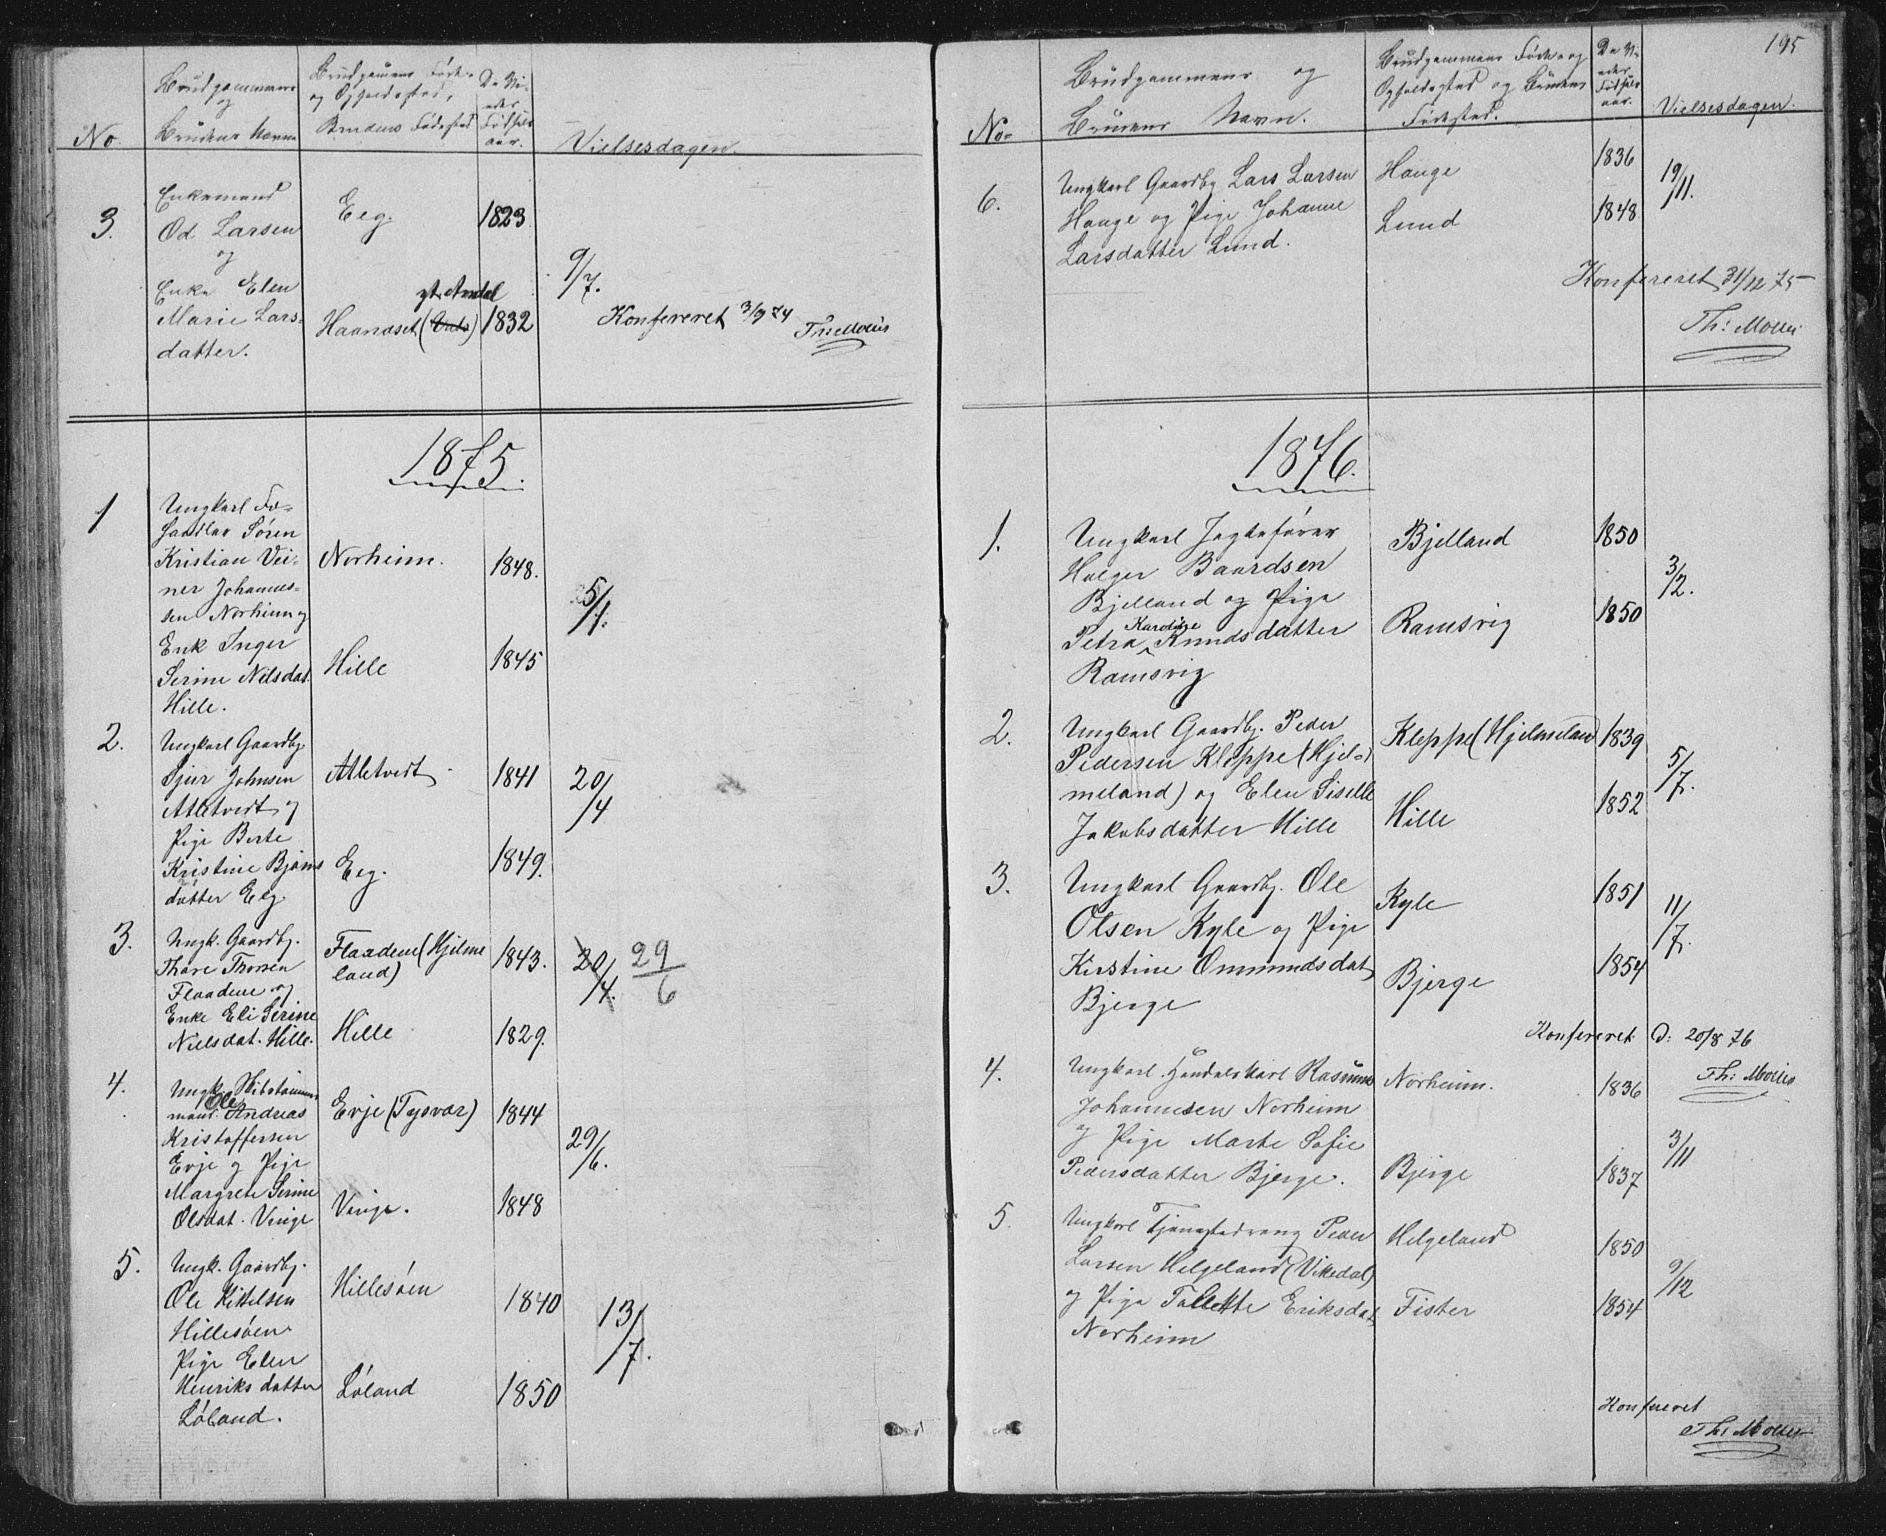 No
Brudgommens
og
Brudens Navne
Brudgomens Føde-
og Opholdssted,
Brudens Fødested
De Vi-
edes
Fødsels
aar.
Vielsesdagen.
3.
Enkemand
Od Larsen
og
Enke Elen
Marie Lars-
datter.
Eeg.
Haandset (Vats)
1823
1832
9/7.
Konfereret 3/9 74
1875.
1
Ungkarl Fø-
handler Søren
Kristian Vei-
ner Johannes-
sen Norheim og
Enk Inger
Serine Nilsdat.
Hille.
Norheim.
Hille
1848.
1845
5/1.
2.
Ungkarl Gaardbg.
Sjur Johnsen
Atletvedt og
Pige Berte
Kristine Bjørns
datter Eeg.
Atletvedt
Eeg.
1841
1849.
20/4
3.
Ungk. Gaardbg.
Thore Thorsen
Flaadene og
Enke Eli Serine
Nielsdat. Hille.
Flaadene (Hjelme
land)
Hille
1843.
1829.
20/4.
29/6
4.
Ungk.
Ole
mand. Andreas
Kristoffersen
Evje og Pige
Margrete Serine
Olsdat. Vinge
Evje (Tysvær)
Vinge.
1844
1848
29/6.
5.
Ungk. Gaardbg.
Ole Kittelsen
Hillesøen
Pige Elen
Henriks datter
Løland.
Hillesøen
Løland
1840
1850
13/7.
195
No
Brudgommens og
Brudens Navn.
Brudgommens Føde- og
Opholdssted og Brudens
Fødested.
De Vi-
edes
Fødsels
aar.
Vielsesdagen.
6.
Ungkarl Gaardbg Lars Larsen
Hauge og Pige Johanne
Larsdatter Lund.
Hauge
Lund
1836
1848
19/11.
Konfereret 31/12 75
Th: Møller
1876.
1.
Ungkarl Jagtefører
Holger Baardsen
Bjelland og Pige
Karoline
Petra Knudsdatter
Ramsvig
Bjelland
Ramsvig
1850
1850
3/2.
2.
Ungkarl Gaardbg. Peder
Pedersen Kleppe (Hjel-
meland) og Elen Siselle
Jakobsdatter Hille
Kleppe (Hjelmeland
Hille
1839
1852
5/7.
3.
Ungkarl Gaardbg. Ole
Olsen Kyle og Pige
Kirstine Ommundsdat
Bjerge
Kyle
Bjerge
1851
1854
11/7.
Konfereret D: 20/8 76
Th: Møller
4.
Ungkarl Handelskarl Rasmus
Johannesen Norheim
og Pige Marte Sofie
Pedersdatter Bjerge.
Norheim.
Bjerge
1836
1837
3/11
5.
Ungkarl Tjenestedreng Peder
Larsen Helgeland (Vikedal)
og Pige Tallette Eriksdat
Norheim
Helgeland
Fister
1850
1854
9/12
Konfereret
Th: Møller